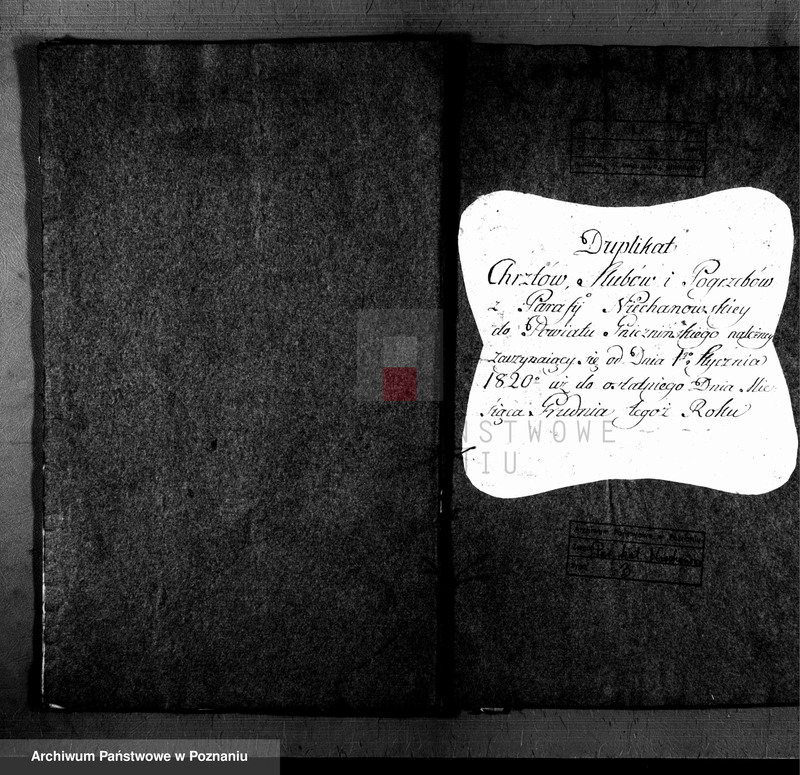 Duplikat
Chrztów, Slubów i Pogrzebów
z Parafij Niechanowskiey
do Powiatu Gnieznińskiego należney
zaczynaiący się od Dnia 1go Stycznia
1820o aż do ostatniego Dnia Mie-
siąca Grudnia tegoż Roku
Archiwum Państwowe w Poznaniu